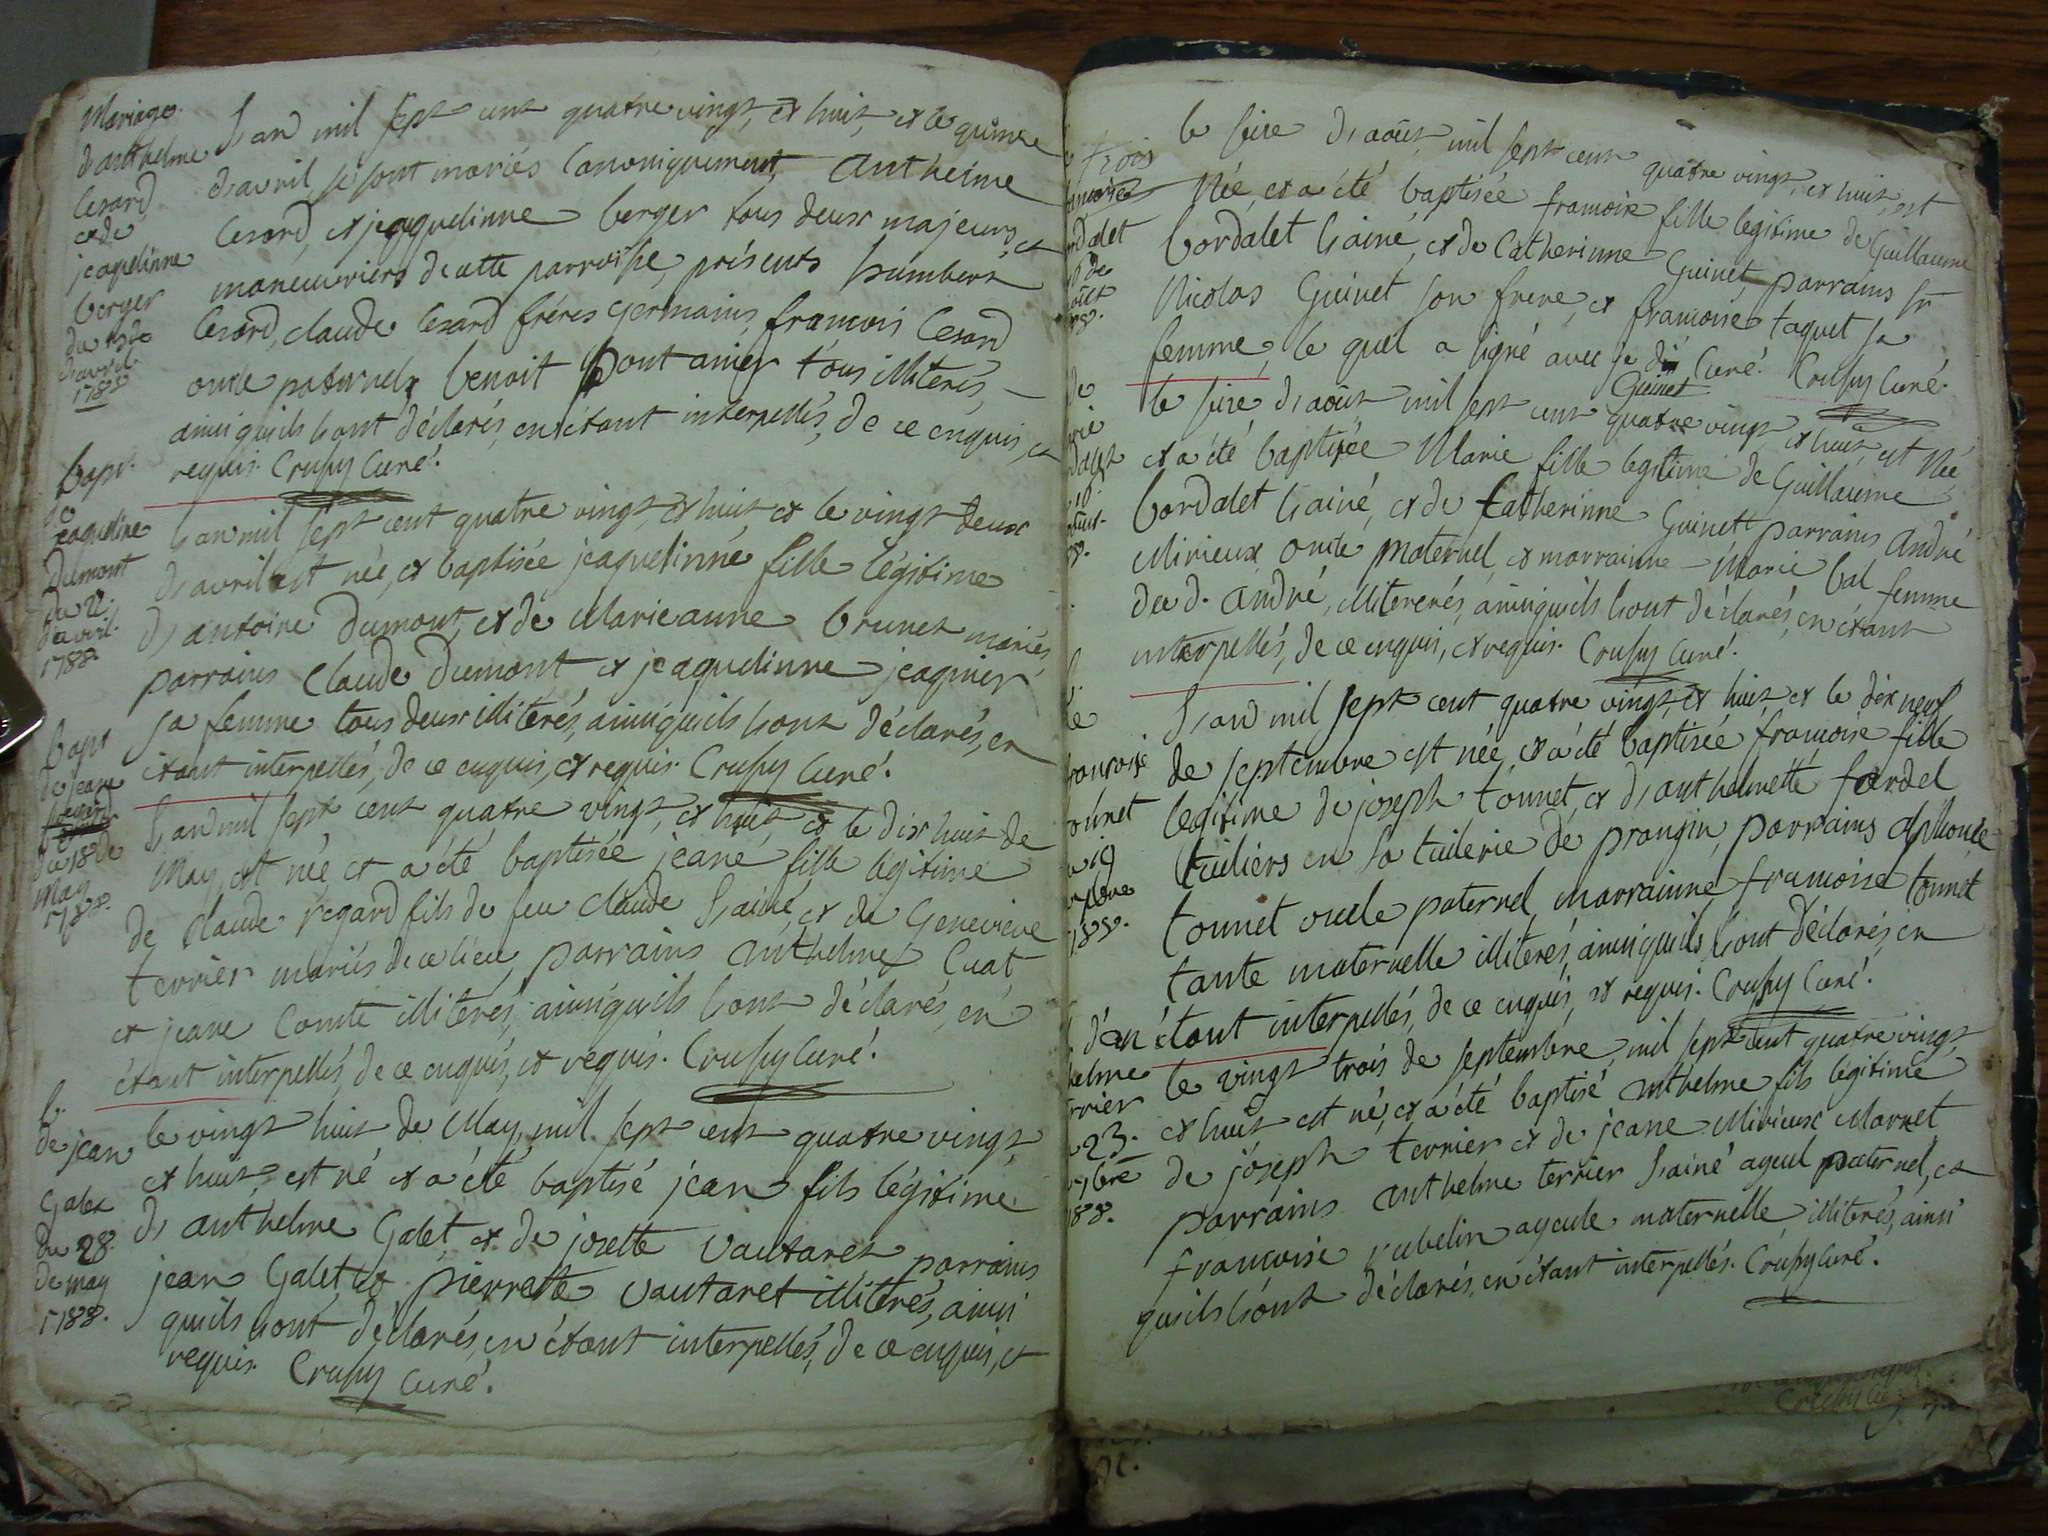 Mariage
d'anthelme
Cesard
et de
jeaquelinne
berger
du 15 de
d'avril
1788
L'an mil sept cent quatre vingt, et huit, et le quinze
d'avril, se sont mariés Canoniquement, Anthelme
Cesard, et jeaquelinne berger tous deux majeurs, et
maneuvriers de cette parroisse, présents humbert
Cesard, claude Cesard fréres germains, francois Cesard
oncle paternel, benoit pontanier tous illiterés,
ainsi quils l'ont déclarés, en étant interpellés, de ce enquis, et
requis. Crussy Curé.
bapt.
de
jeaqueline
Dumont
du 22.
d'avril.
1788.
L'an mil sept cent quatre vingt, et huit, et le vingt deux
d'avril est née, et baptisée jeaquelinne fille légitime
d'antoine Dumont, et de Marieanne brunet mariés,
parrains Claude Dumont et jeaquelinne jeaquier
sa femme tous deux illiterés, ainsi quils l'ont déclarés, en
étant interpellés, de ce enquis, et requis. Crussy Curé.
bapt
de jeane
regard
du 18 de
may
1788.
L'an mil sept cent quatre vingt, et huit, et le dix huit de
May, est née et a été baptisée jeane fille legitime
de claude regard fils de feu claude L'ainé, et de Genevieve
terrier mariés de ce lieu, parrains Anthelme Cuat
et jeane Comte illiterés, ainsi quils l'ont déclarés, en
étant interpellés, de ce enquis, et requis. Crussy Curé.
b.
de jean
Galet
du 28.
de may
1788.
le vingt huit de May, mil sept cent quatre vingt,
et huit, est né et a été baptisé jean fils légitime
d'anthelme Galet, et de josette Vautaret parrains
jean Galet, et pierrette Vautaret illiterés, ainsi
quils l'ont déclarés, en étant interpellés, de ce enquis, et
requis. Crussy Curé.
trois
rdalet
le seize d'août, mil sept cent quatre vingt, et huit, est
Née, et a été baptisée francoise fille legitime de Guillaume
bordalet L'ainé, et de Catherinne Guinet, parrains Sr
Nicolas Guinet son frere, et francoise taquet sa
femme, le quel a signé avec je dit Curé. Crussy Curé.
Guinet
le seize d'août mil sept cent quatre vingt, et huit, est Née
et a été baptisée Marie fille legitime de Guillaume
bordalet L'ainé, et de Catherinne Guinet parrains André
Mirieux oncle maternel, et marrainne Marie bal femme
du d. André, illiterés, ainsi quils l'ont déclarés, en étant
interpellés, de ce enquis, et requis. Crussy Curé.
L'an mil sept cent quatre vingt, et huit, et le dix neuf
de septembre est née, et a été baptisée francoise fille
legitime de joseph tonnet, et d'anthelmette fardel
tuiliers en la tuilerie de prangin, parrains alphonse
tonnet oncle paternel, marrainne francoise tonnet
tante maternelle illiterés, ainsi quils l'ont déclarés, en
étant interpellés, de ce enquis, et requis. Crussy Curé.
d'an
helme
rrier
23.
7bre
188.
le vingt trois de septembre, mil sept cent quatre vingt,
et huit est né, et a été baptisé Anthelme fils légitime
de joseph terrier et de jeane Mirieux Marnet
parrains anthelme terrier L'ainé ayeul paternel, et
francoise rubelin ayeule maternelle illiterés, ainsi
quils l'ont déclarés, en étant interpellés. Crussy Curé.